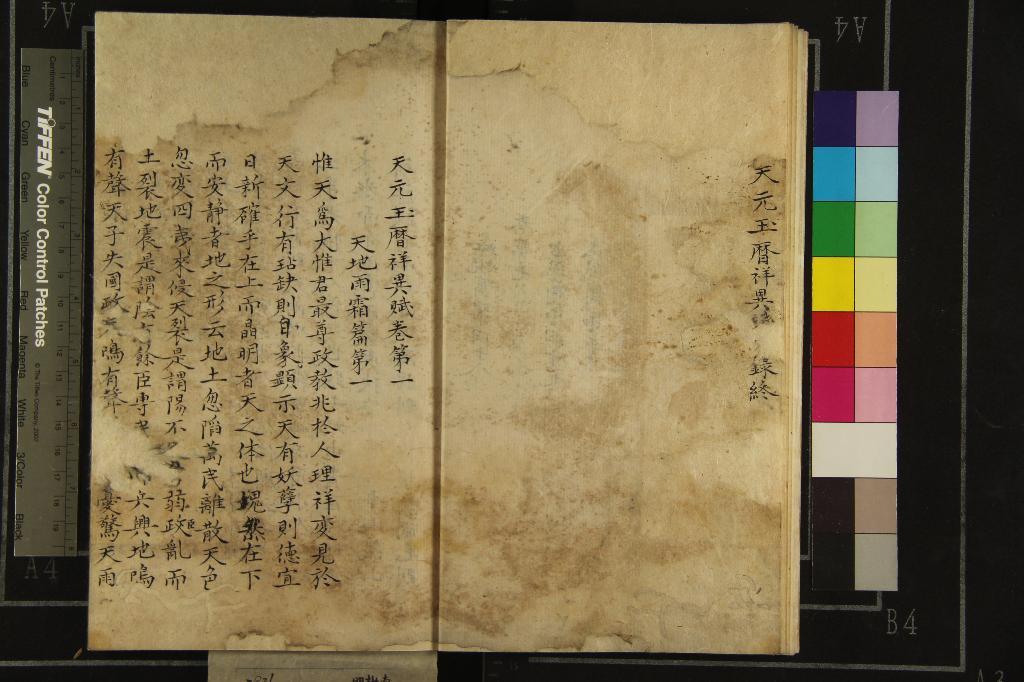 天元玉曆祥異 錄終
天元玉曆祥異賦卷第一
天地雨霜篇第一
惟天爲大惟君最尊政教兆於人理祥変見於
天文行有玷缺則自象顯示天有妖孽則德宜
日新確乎在上而晶明者天之体也塊然在下
而安靜者地之形云地土忽陷萬民離散天色
忽変四夷來侵天裂是謂陽不 臣弱政亂而
土裂地震是謂陰 餘臣專 兵興地鳴
有聲天子失國政 鳴有聲 憂驚天雨
TIFFEN Color Control Patches
© The Tiffen Company, 2007
Centimetres
Inches
Blue
Cyan
Green
Yellow
Red
Magenta
White
3/Color
Black
A4
A4
A4
B4
A3